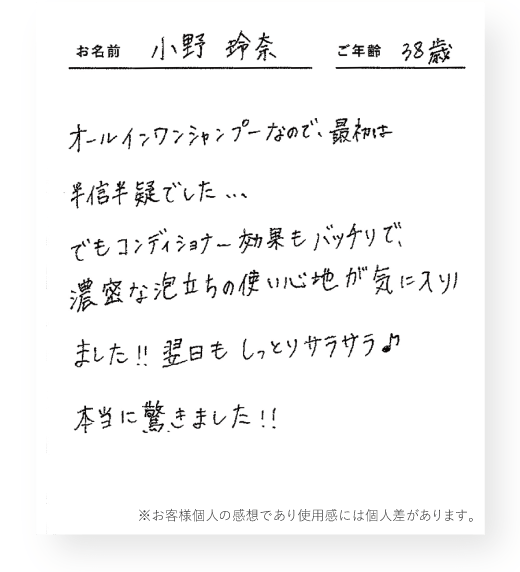 お名前 小野 玲奈 ご年齢 38歳
オールインワンシャンプーなので、最初は
半信半疑でした...
でもコンディショナー効果もバッチリで、
濃密な泡立ちの使い心地が気に入り
ました!! 翌日もしっとりサラサラ♪
本当に驚きました!!
※お客様個人の感想であり使用感には個人差があります。